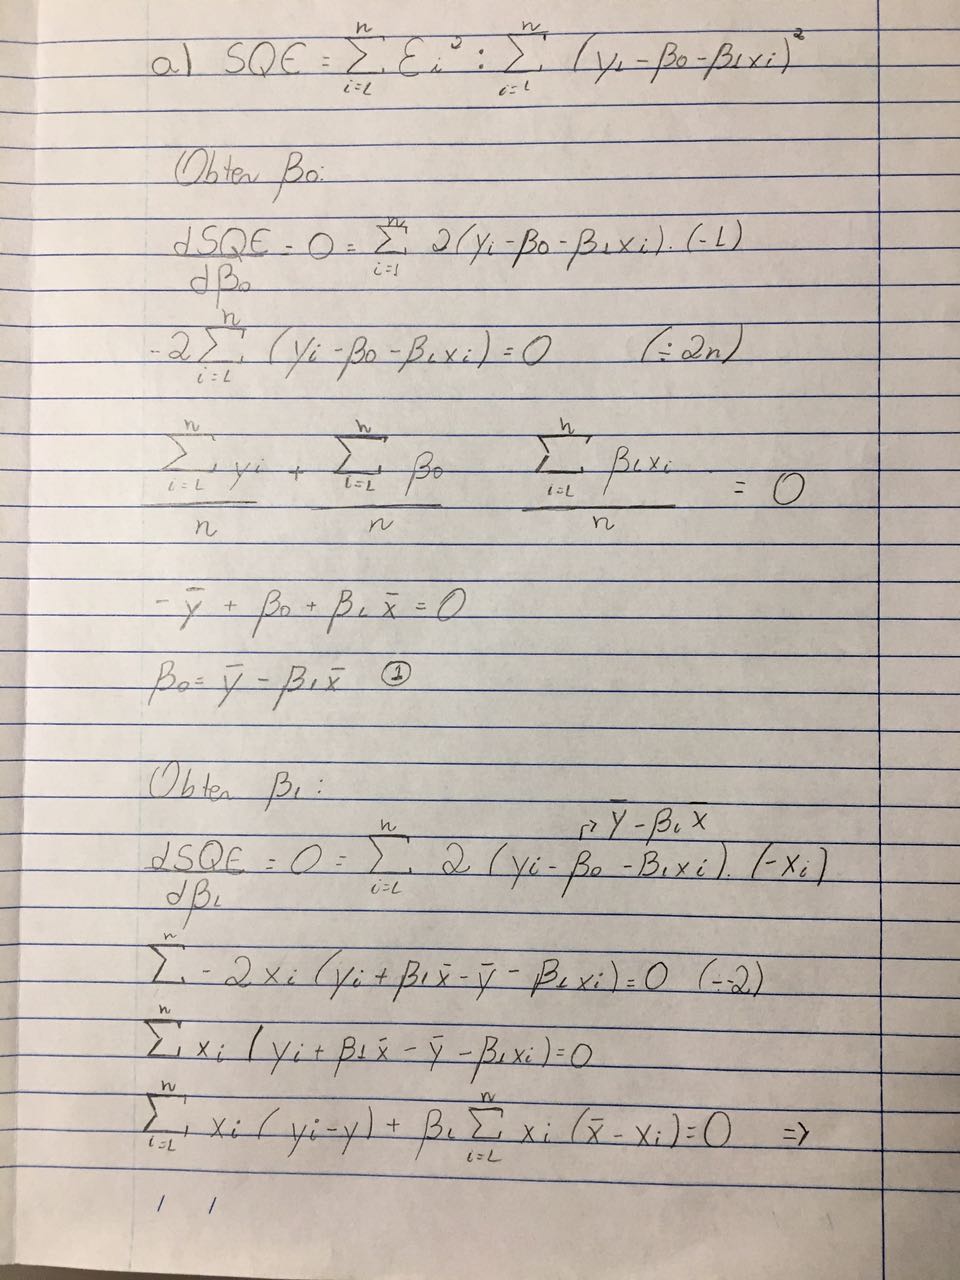 a) SQE = Σ_{i=1}^{n} Ei² : Σ_{i=1}^{n} (yi - β0 - β1xi)²
Obter β0:
dSQE/dβ0 = 0 = Σ_{i=1}^{n} 2(yi - β0 - β1xi).(-1)
-2 Σ_{i=1}^{n} (yi - β0 - β1xi) = 0 (÷2n)
Σ_{i=1}^{n} yi / n + Σ_{i=1}^{n} β0 / n Σ_{i=1}^{n} β1xi / n = 0
- ȳ + β0 + β1 x̄ = 0
β0 = ȳ - β1x̄ ①
Obter β1:
↱ ȳ - β1 x̄
dSQE/dβ1 = 0 = Σ_{i=1}^{n} 2 (yi - β0 - β1xi). (-xi)
Σ^{n} - 2xi (yi + β1x̄ - ȳ - β1xi) = 0 (÷-2)
Σ^{n} xi (yi + β1x̄ - ȳ - β1xi) = 0
Σ_{i=1}^{n} xi (yi - y) + β1 Σ_{i=1}^{n} xi (x̄ - xi) = 0 =>
/ /